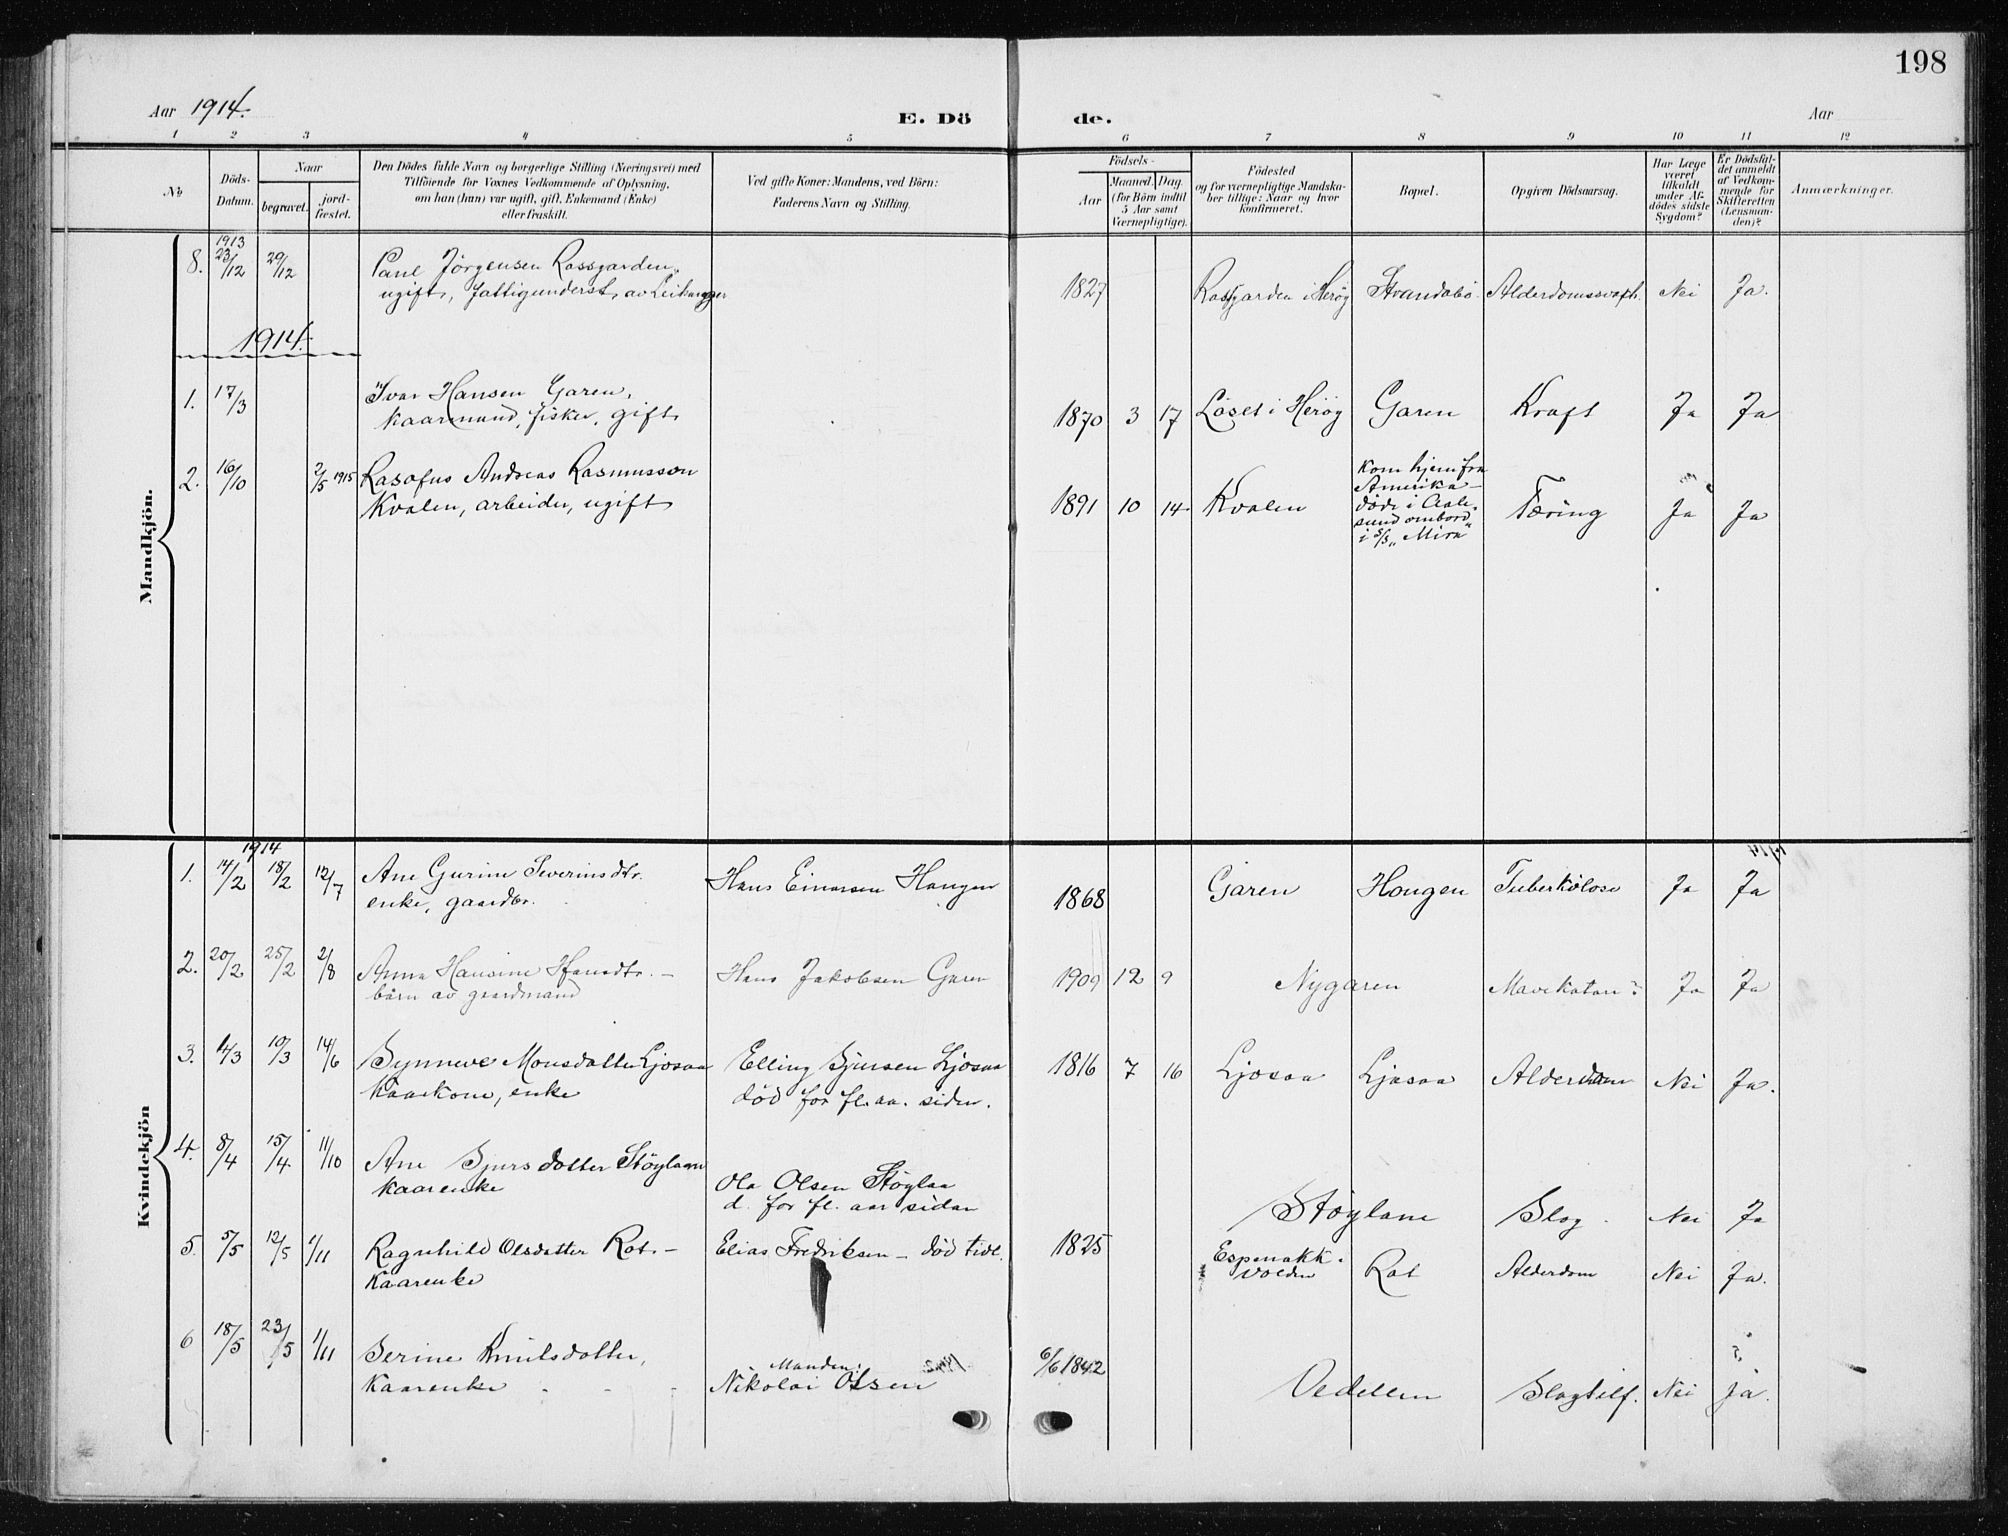 198
Aar 1914.
E. Dö de.
Aar
1 2 3 4 5 6 7 8 9 10 11 12
No
Döds-
Datum.
Naar
begravet.
jord-
fæstet.
Den Dödes fulde Navn og borgerlige Stilling (Næringsvei) med
Tilföiende for Voxnes Vedkommende af Oplysning,
om han (hun) var ugift, gift, Enkemand (Enke)
eller fraskilt.
Ved gifte Koner: Mandens, ved Börn:
Faderens Navn og Stilling.
Födsels-
Aar
Maaned. Dag
(for Börn indtil
5 Aar samt
Værnepligtige).
Födested
og for værnepligtige Mandska-
ber tillige: Naar og hvor
konfirmeret.
Bopæl.
Opgiven Dödsaarsag.
Har Læge
været
tilkaldt
under Af-
dödes sidste
Sygdom?
Er Dödsfal-
det anmeldt
af Vedkom-
mende for
Skifteretten
(Lensman-
den)?
Anmærkninger.
Mandkjön.
1913
8. 23/12 29/12 Paul Jörgensen Rossgarden, 1827 Rossgarden i Heröy Strandabö Alderdomssvakh. Nei Ja.
ugift, fattigunderst. av Leikanger
1914.
1. 17/3 Ivar Hansen Garen, 1870 3 17 Löset i Heröy Garen Kraft Ja Ja
kaarmand, fisker, gift
2. 16/10 2/5 1915 Rasofus Andreas Rasmussen 1891 10 14 Kvalen Tæring Ja Ja
Kvalen, arbeider, ugift
Kom hjem fra
Amerika –
döde i Aale-
sund ombord
i S/S „Mira"
Kvindekjön
1914
1. 14/2 18/2 12/7 Ane Gurine Severinsdtr. Hans Einarsen Haugen 1868 Garen Hougen Tuberkölose Ja Ja
enke, gaardbr.
2. 20/2 25/2 2/8 Anna Hansine Hansdtr. – Hans Jakobsen Garen 1909 12 9 Nygaren Mavekatar Ja Ja
barn av gaardmand
3. 4/3 10/3 14/6 Synneve Monsdatter Ljosaa Elling Sjursen Ljosaa 1816 7 16 Ljosaa Ljosaa Alderdom Nei Ja.
Kaarkone, enke död for fl. aa. siden.
4. 8/4 15/4 11/10 Ane Sjursdotter Stöylane Ola Olsen Stöylaa Stöylane Slag. Nei Ja
kaarenke d. for fl. aar sidan
5. 5/5 12/5 1/11 Ragnhild Olsdatter Rot. – Elias Fredriksen – död tidl. 1825 Espenakk i Rot Alderdom Nei Ja.
Kaarenke Volden
6 18/5 23/5 1/11 Serine Knutsdotter, Manden: 6/6 1842 Vedellem Slagtilf. Nei ja.
Kaarenke Nikolai Olsen